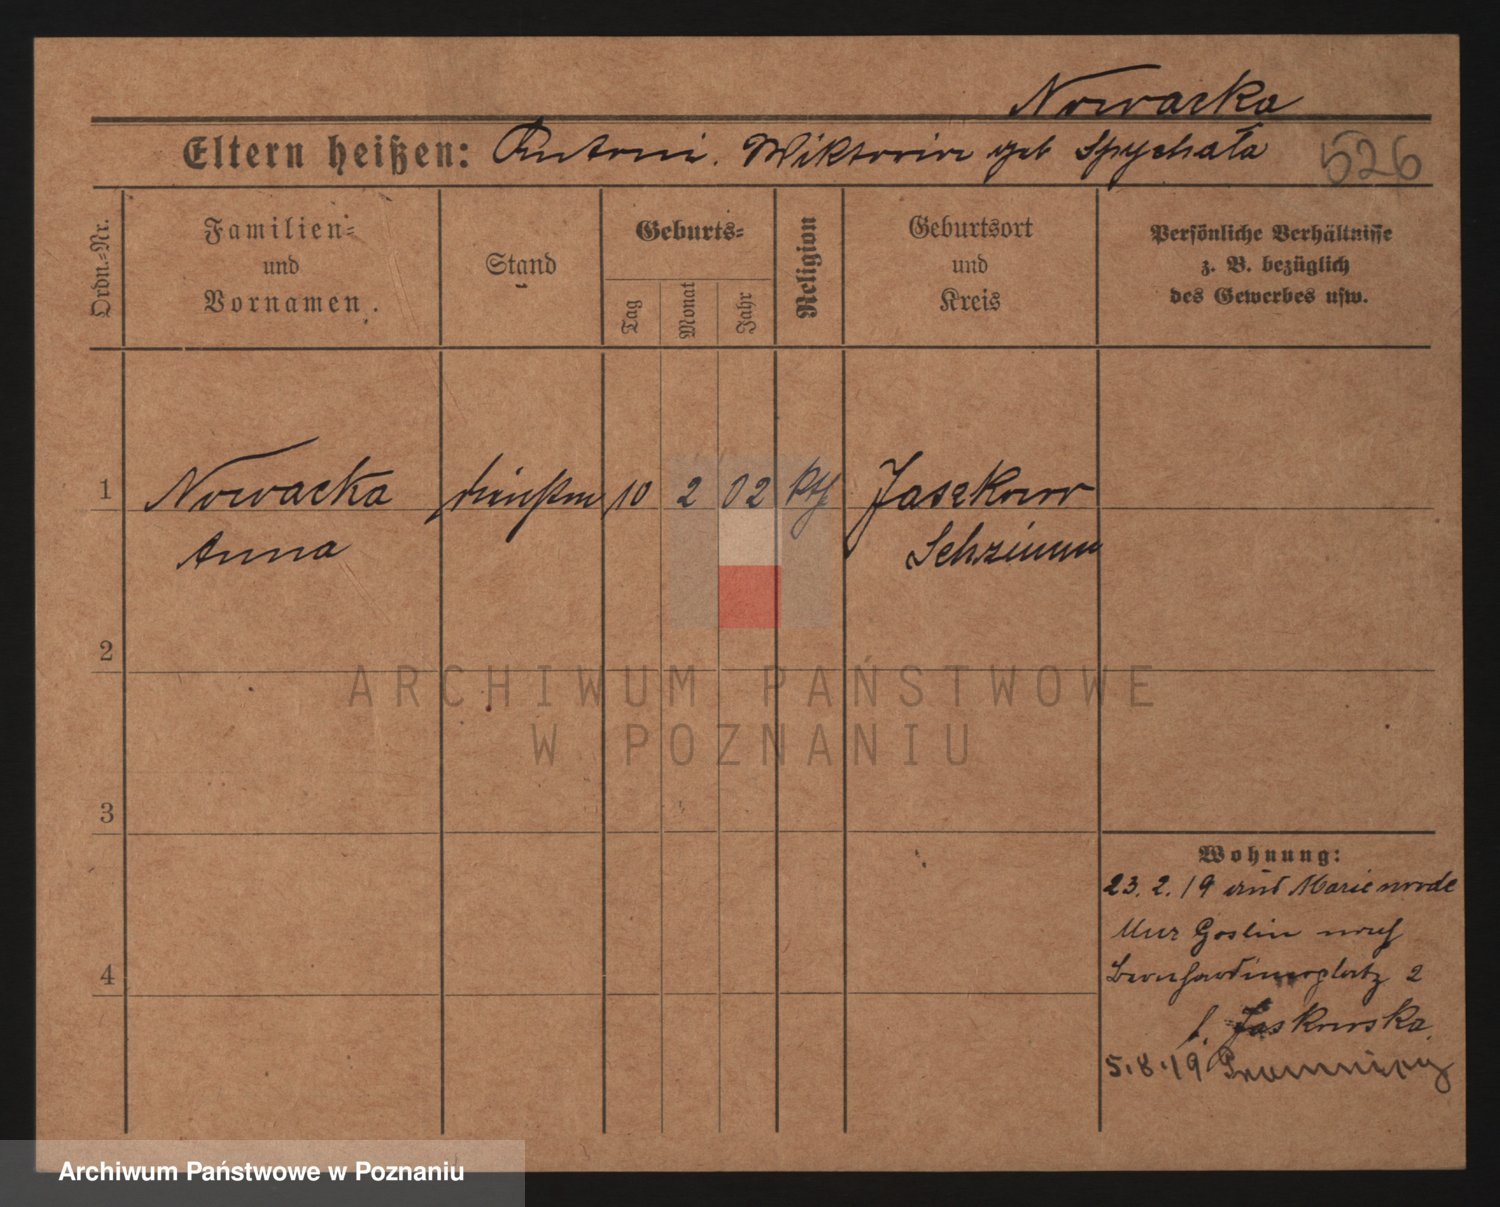 Nowacka
Eltern heißen: Antoni. Wiktoria geb Spychała 526
Ordn.-Nr.
Familien-
und
Vornamen.
Stand
Geburts-
Tag
Monat
Jahr
Religion
Geburtsort
und
Kreis
Persönliche Verhältnisse
z. B. bezüglich
des Gewerbes usw.
1 Nowacka 10 2 02 kth Jaszkowo
Anna Schrimm
2
ARCHIWUM PAŃSTWOWE
W POZNANIU
3
Wohnung:
23.2.19 aus Marienrode
Mur Goslin nach
4 Bernhardinerplatz 2
f. Jaskowska
5.8.19
Archiwum Państwowe w Poznaniu